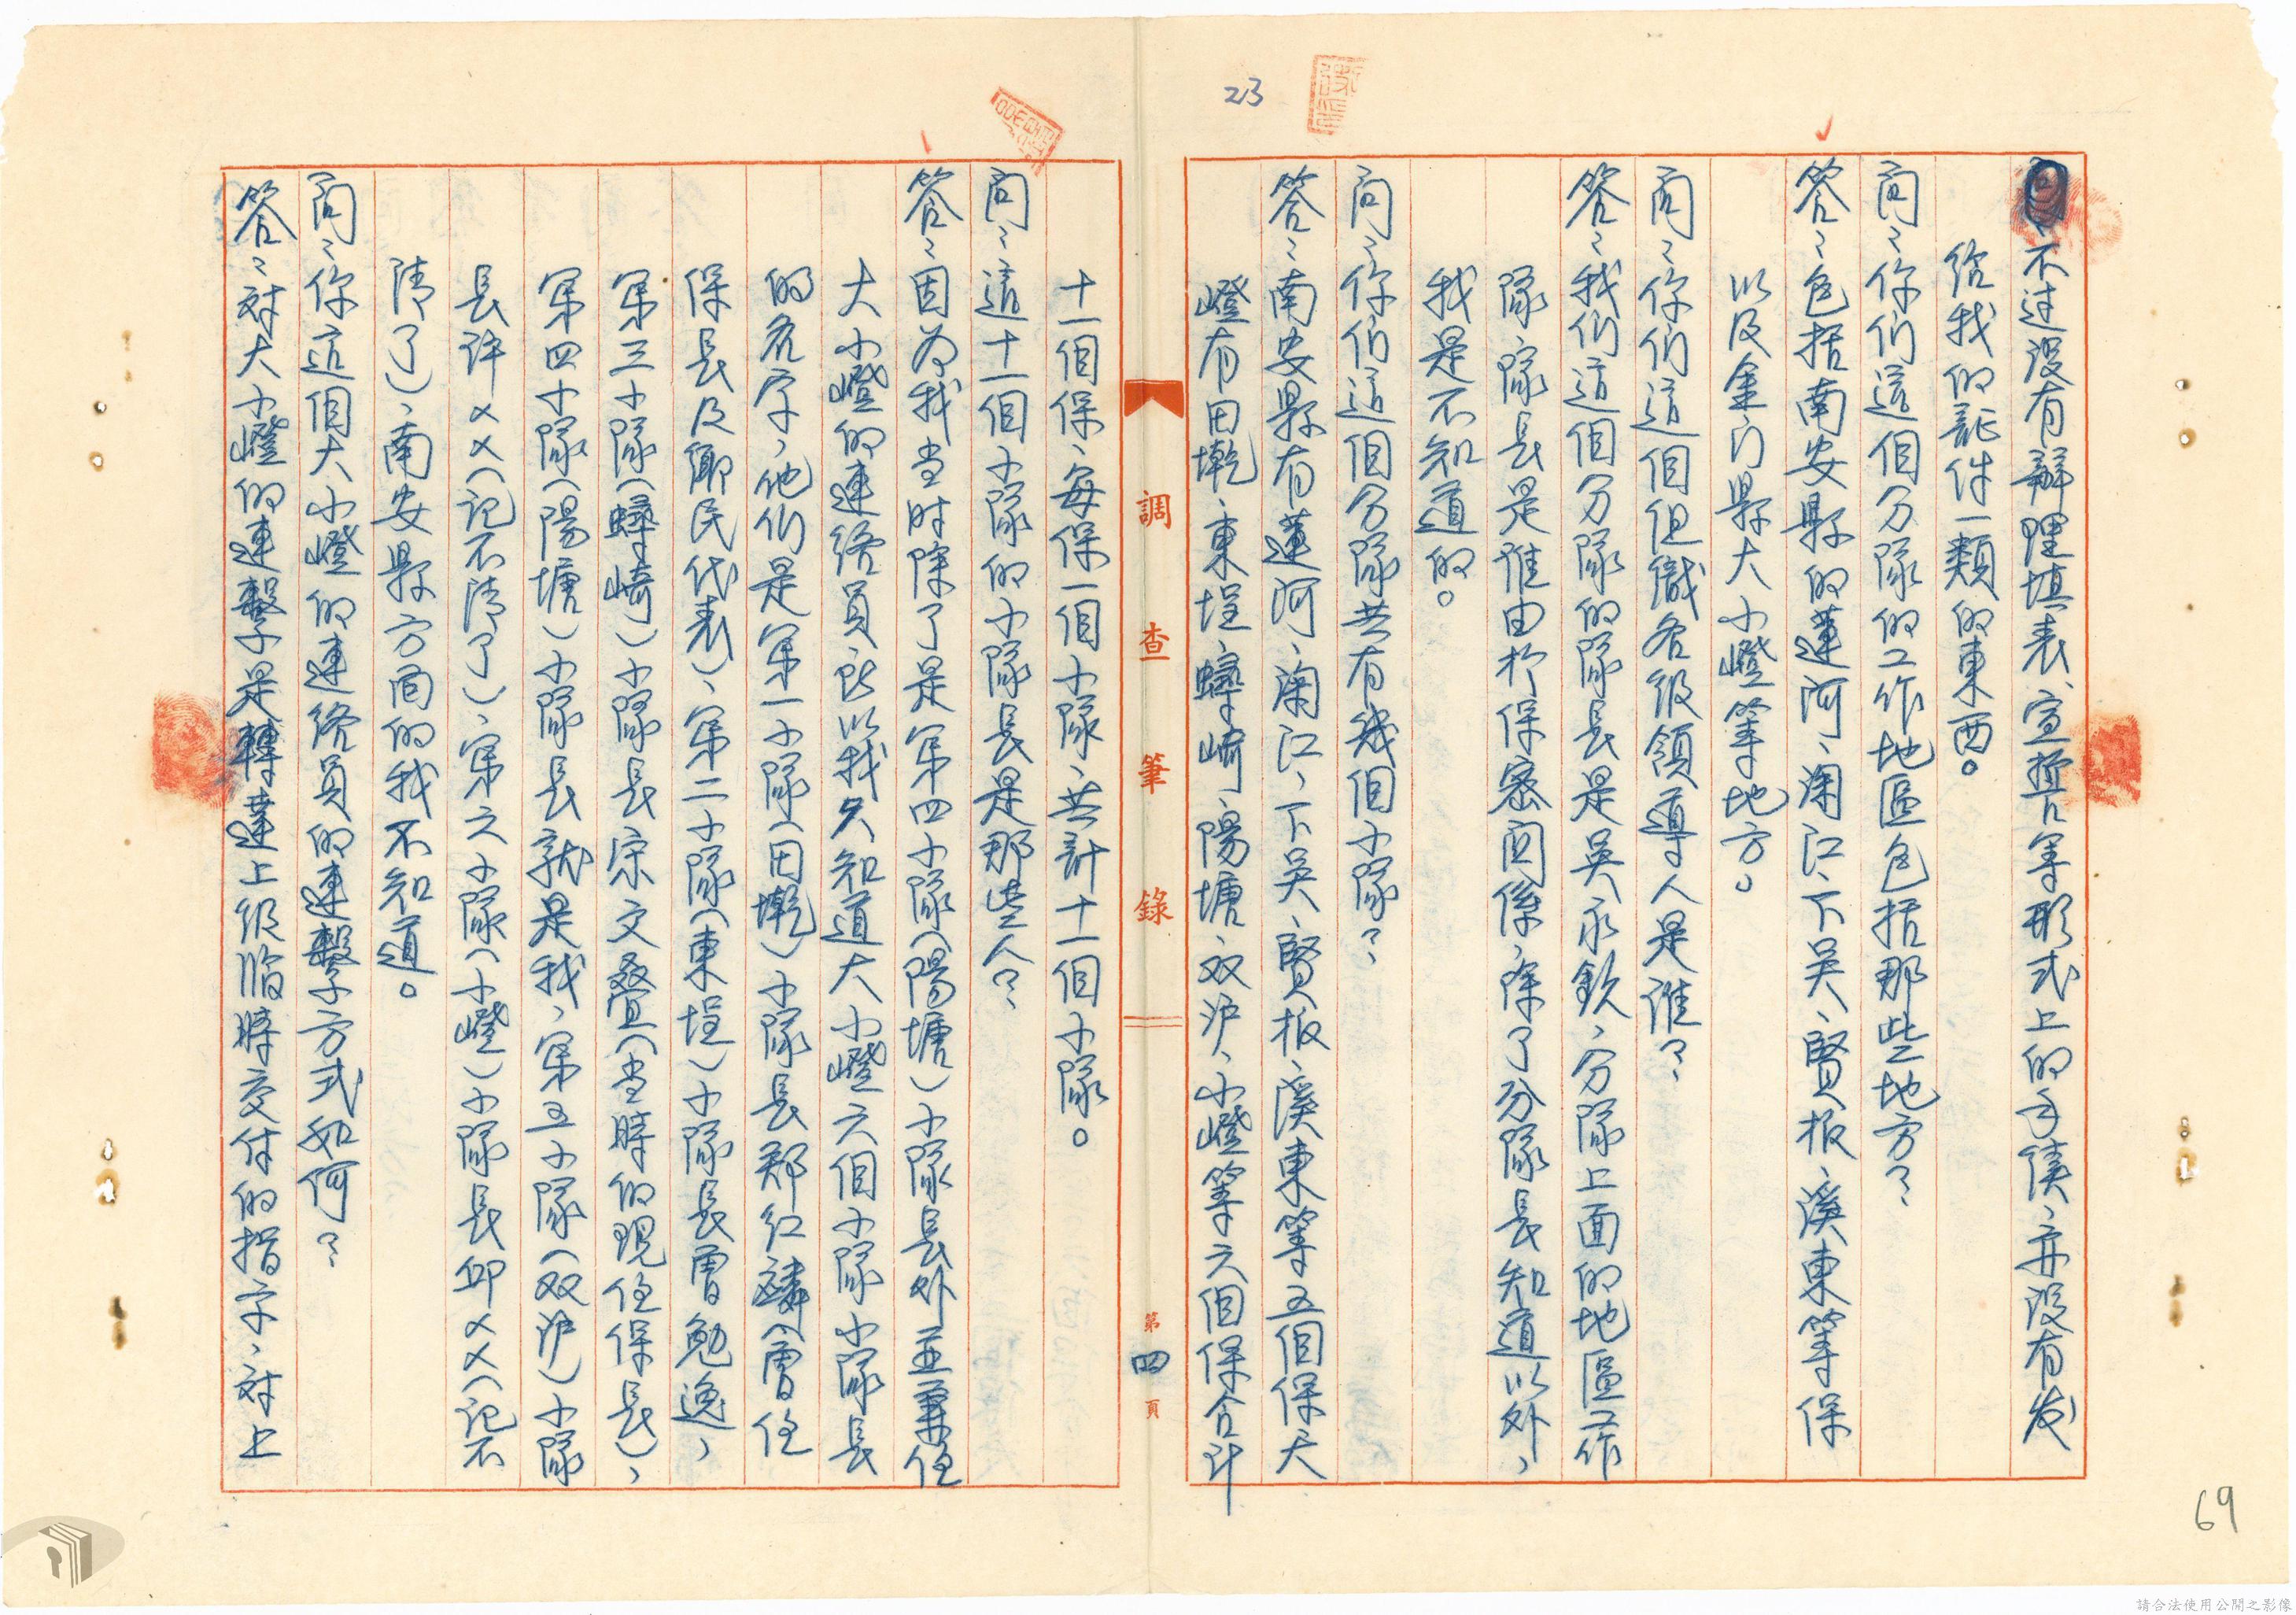 23
不过没有辦理填表、宣誓等形式上的手續、亦没有发
給我的証件一類的東西。
问：你们這個分隊的工作地區包括那些地方？
答：包括南安縣的蓮河、淘江、下吴、賢板、溪東等保
以及金门縣大小嶝等地方。
问：你们這個组織各级領導人是谁？
答：我们這個分隊的隊長是吴永欽，分隊上面的地區工作
隊、隊長是谁由於保密関係，除了分隊長知道以外，
我是不知道的。
问：你们這個分隊共有幾個小隊？
答：南安縣有蓮河、淘江、下吴、賢板、溪東等五個保大
嶝有田墘、東埕、蟳崎、陽塘、双沪、小嶝等六個保合计
調查筆錄
第四頁
十一個保、每保一個小隊、共計十一個小隊。
问：這十一個小隊的小隊長是那些人？
答：因为我当时除了是第四小隊（陽塘）小隊長外並兼任
大小嶝的連络員所以我只知道大小嶝六個小隊小隊長
的名字，他们是第一小隊（田墘）小隊長郑红麟（曾任
保長及鄉民代表）、第二小隊（東埕）小隊長曹勉逸，
第三小隊（蟳崎）小隊長宋文叠（当時的現任保長），
第四小隊（陽塘）小隊長就是我，第五小隊（双沪）小隊
長许××（记不清了），第六小隊（小嶝）小隊長邱××（记不
清了），南安縣方面的我不知道。
问：你這個大小嶝的連络員的連繫方式如何？
答：对大小嶝的連繫是轉達上级臨時交付的指示，对上
69
請合法使用公開之影像